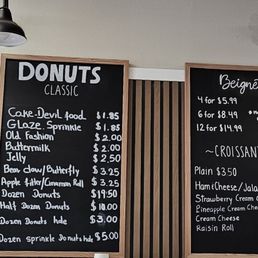 DONUTS
CLASSIC
Cake. Devil food $1.85
Glaze. Sprinkle $1.85
Old Fashion $2.00
Buttermilk $2.00
Jelly $2.50
Bear claw/Butterfly $3.25
Apple fitter/Cinamon Roll $3.25
Dozen Donuts $19.50
Half Dozen Donuts $10.00
Dozen Donuts hole $3.00
Dozen sprinkle Donuts hole $5.00
Beigne
4 for $5.99
6 for $8.49
12 for $14.99
~CROISSANT
Plain $3.50
Ham & Cheese/Jala
Strawberry Cream C
Pineapple Cream Che
Cream Cheese
Raisin Roll